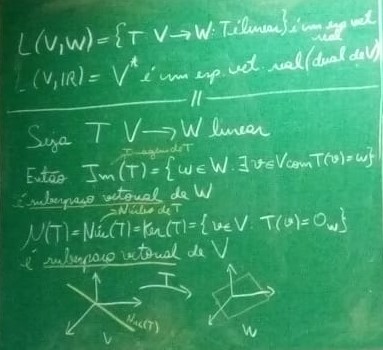 L(V,W) = {T V → W: T é linear} é um esp. vet. real
L(V,IR) = V* é um esp. vet. real (dual de V)
Seja T V → W linear
Imagem de T
Então Im(T) = {w ∈ W. ∃ v ∈ V com T(v) = w}
é subespaço vetorial de W
Núcleo de T
N(T) = Núc(T) = Ker(T) = {v ∈ V. T(v) = 0w}
é subespaço vetorial de V
T
Núc(T)
V
W